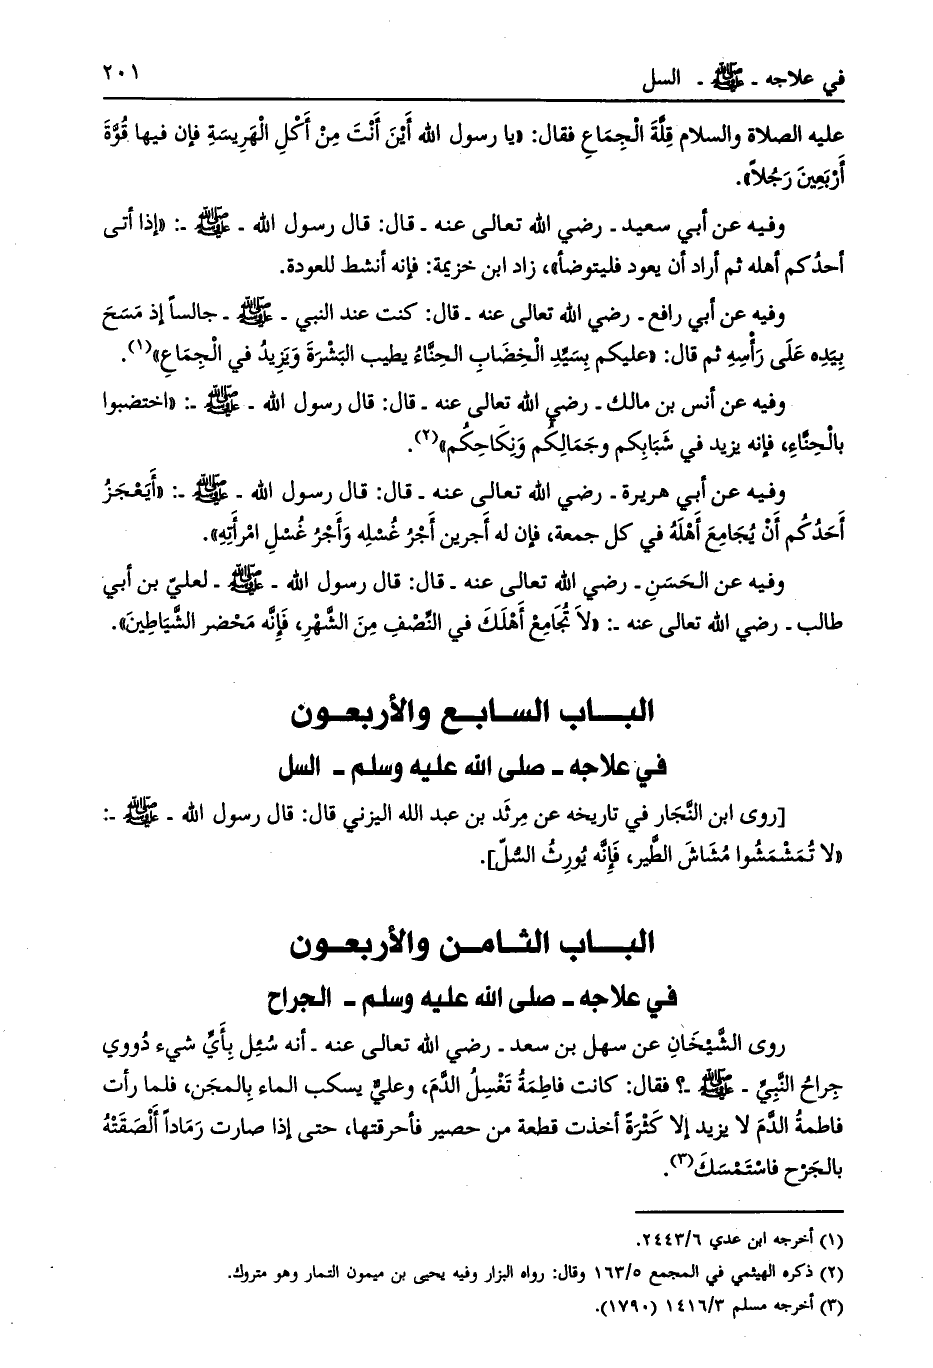 في علاجه ـ ﷺ ـ السل
٢٠١
عليه الصلاة والسلام قِلَّةَ الْجِمَاعِ فقال: «يا رسول الله أَيْنَ أَنْتَ مِنْ أَكْلِ الْهَرِيسَةِ فإن فيها قُوَّةَ
أَرْبَعِينَ رَجُلاً».
وفيه عن أبي سعيد ـ رضي الله تعالى عنه ـ قال: قال رسول الله ـ ﷺ ـ: «إذا أتى
أحدُكم أهله ثم أراد أن يعود فليتوضأ»، زاد ابن خزيمة: فإنه أنشط للعودة.
وفيه عن أبي رافع ـ رضي الله تعالى عنه ـ قال: كنت عند النبي ـ ﷺ ـ جالساً إذ مَسَحَ
بِيَدِه عَلَى رَأْسِهِ ثم قال: «عليكم بِسَيِّدِ الْخِضَابِ الحِنَّاءُ يطيب البَشْرَةَ وَيَزِيدُ في الْجِمَاعِ»(١).
وفيه عن أنس بن مالك ـ رضي الله تعالى عنه ـ قال: قال رسول الله ـ ﷺ ـ: «اختضبوا
بالْحِنَّاءِ، فإنه يزيد في شَبَابِكم وجَمَالِكُم وَنِكَاحِكُم»(٢).
وفيه عن أبي هريرة ـ رضي الله تعالى عنه ـ قال: قال رسول الله ـ ﷺ ـ: «أَيَعْجَزُ
أَحَدُكُم أَنْ يُجَامِعَ أَهْلَهُ في كل جمعة، فإن له أجرين أَجْرُ غُسْلِه وَأَجْرُ غُسْلِ امْرأَتِهِ».
وفيه عن الحَسَنِ ـ رضي الله تعالى عنه ـ قال: قال رسول الله ـ ﷺ ـ لعليّ بن أبي
طالب ـ رضي الله تعالى عنه ـ: «لاَ تُجَامِعْ أَهْلَكَ في النِّصْفِ مِنَ الشَّهْرِ، فَإِنَّه مَحْضر الشَّيَاطِينَ».
البـــاب السـابـع والأربعـون
في علاجه ـ صلى الله عليه وسلم ـ السل
[روى ابن النَّجار في تاريخه عن مِرثَد بن عبد الله اليزني قال: قال رسول الله ـ ﷺ ـ:
«لا تُمَشْمَشُوا مُشَاشَ الطَّيرِ، فَإِنَّه يُورِثُ السُّلّ].
البـــاب الثـامـن والأربعـون
في علاجه ـ صلى الله عليه وسلم ـ الجراح
روى الشَّيْخَانِ عن سهل بن سعد ـ رضي الله تعالى عنه ـ أنه سُئِل بِأَيِّ شيء دُووي
جِراحُ النَّبِيِّ ـ ﷺ ـ؟ فقال: كانت فاطِمَةُ تَغْسِلُ الدَّمَ، وعليٌّ يسكب الماء بِالمجَن، فلما رأت
فاطمةُ الدَّمَ لا يزيد إلا كَثْرَةً أخذت قطعة من حصير فأحرقتها، حتى إذا صارت رَمَاداً أَلْصَقَتْهُ
بالجَرْح فاسْتَمْسَكَ(٣).
(١) أخرجه ابن عدي ٢٤٤٣/٦.
(٢) ذكره الهيثمي في المجمع ١٦٣/٥ وقال: رواه البزار وفيه يحيى بن ميمون التمار وهو متروك.
(٣) أخرجه مسلم ١٤١٦/٣ (١٧٩٠).